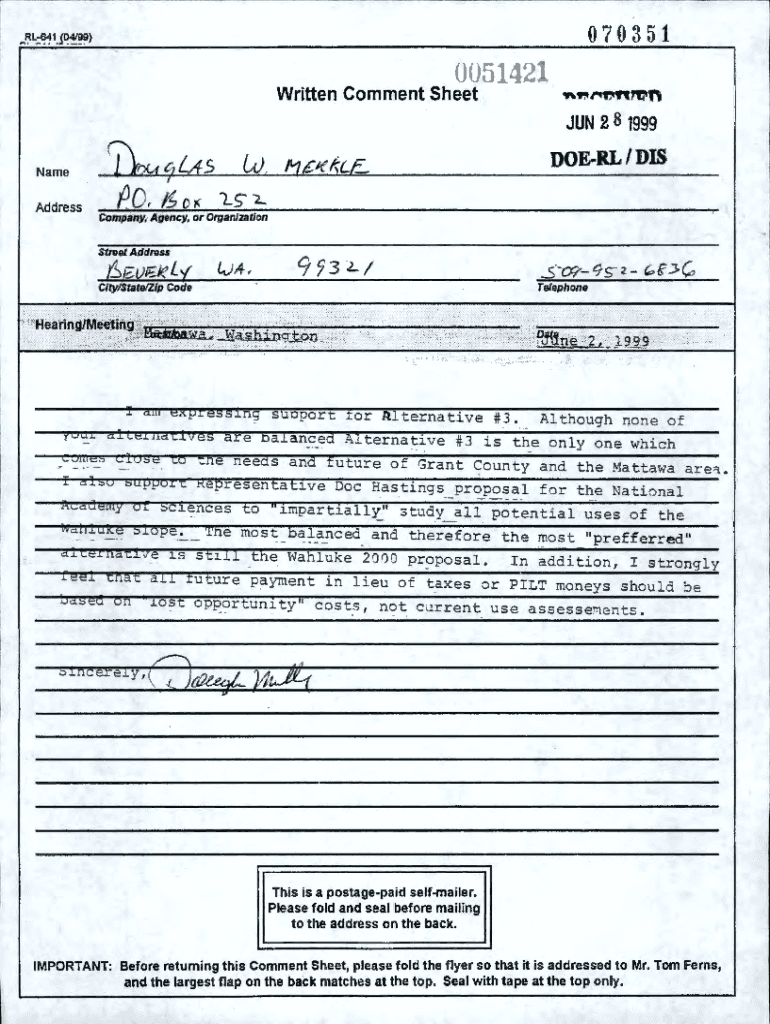 RL-641 (04/99)
070351
0051421
Written Comment Sheet
RECEIVED
JUN 28 1999
DOE-RL / DIS
Name DOUGLAS W. MERKLE
Address P.O. Box 252
Company, Agency, or Organization
Street Address
BEVERLY WA. 99321 509-952-6836
City/State/Zip Code Telephone
Hearing/Meeting Mattawa, Washington Date June 2, 1999
I am expressing support for Alternative #3. Although none of
your alternatives are balanced Alternative #3 is the only one which
comes close to the needs and future of Grant County and the Mattawa area.
I also support Representative Doc Hastings proposal for the National
Academy of Sciences to "impartially" study all potential uses of the
Wahluke Slope. The most balanced and therefore the most "prefferred"
alternative is still the Wahluke 2000 proposal. In addition, I strongly
feel that all future payment in lieu of taxes or PILT moneys should be
based on "lost opportunity" costs, not current use assessements.
Sincerely,
This is a postage-paid self-mailer.
Please fold and seal before mailing
to the address on the back.
IMPORTANT: Before returning this Comment Sheet, please fold the flyer so that it is addressed to Mr. Tom Ferns,
and the largest flap on the back matches at the top. Seal with tape at the top only.